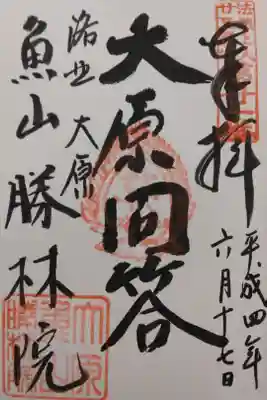 奉拝
平成四年
六月十七日
大原問答
洛北 大原
魚山 勝林院